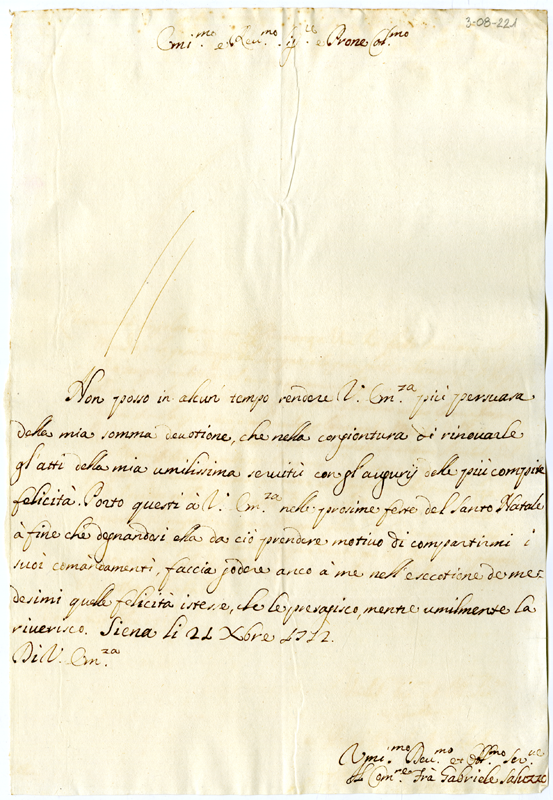 3-08-221
Emi.mo e Reu.mo Sig.re e Prone Col.mo
Non posso in alcun tempo rendere V. Em.za più persuasa
della mia somma deuotione, che nella congiontura di rinouarle
gl'atti della mia umilissima seruitù con gl'augurij delle più compite
felicità. Porto questi à V. Em.za nelle prossime feste del Santo Natale
à fine che degnandosi ella da ciò prendere motivo di compartirmi i
suoi comandamenti, faccia godere anco à me nell'essecutione de me=
desimi quelle felicità istesse, che le presagisco, mentre umilmente la
riuerisco. Siena li 21 Xbre 1712.
Di V. Em.za
Vmi.mo Deu.mo et Obl.mo Ser.re
Com.re Frà Gabriele Saluzzo